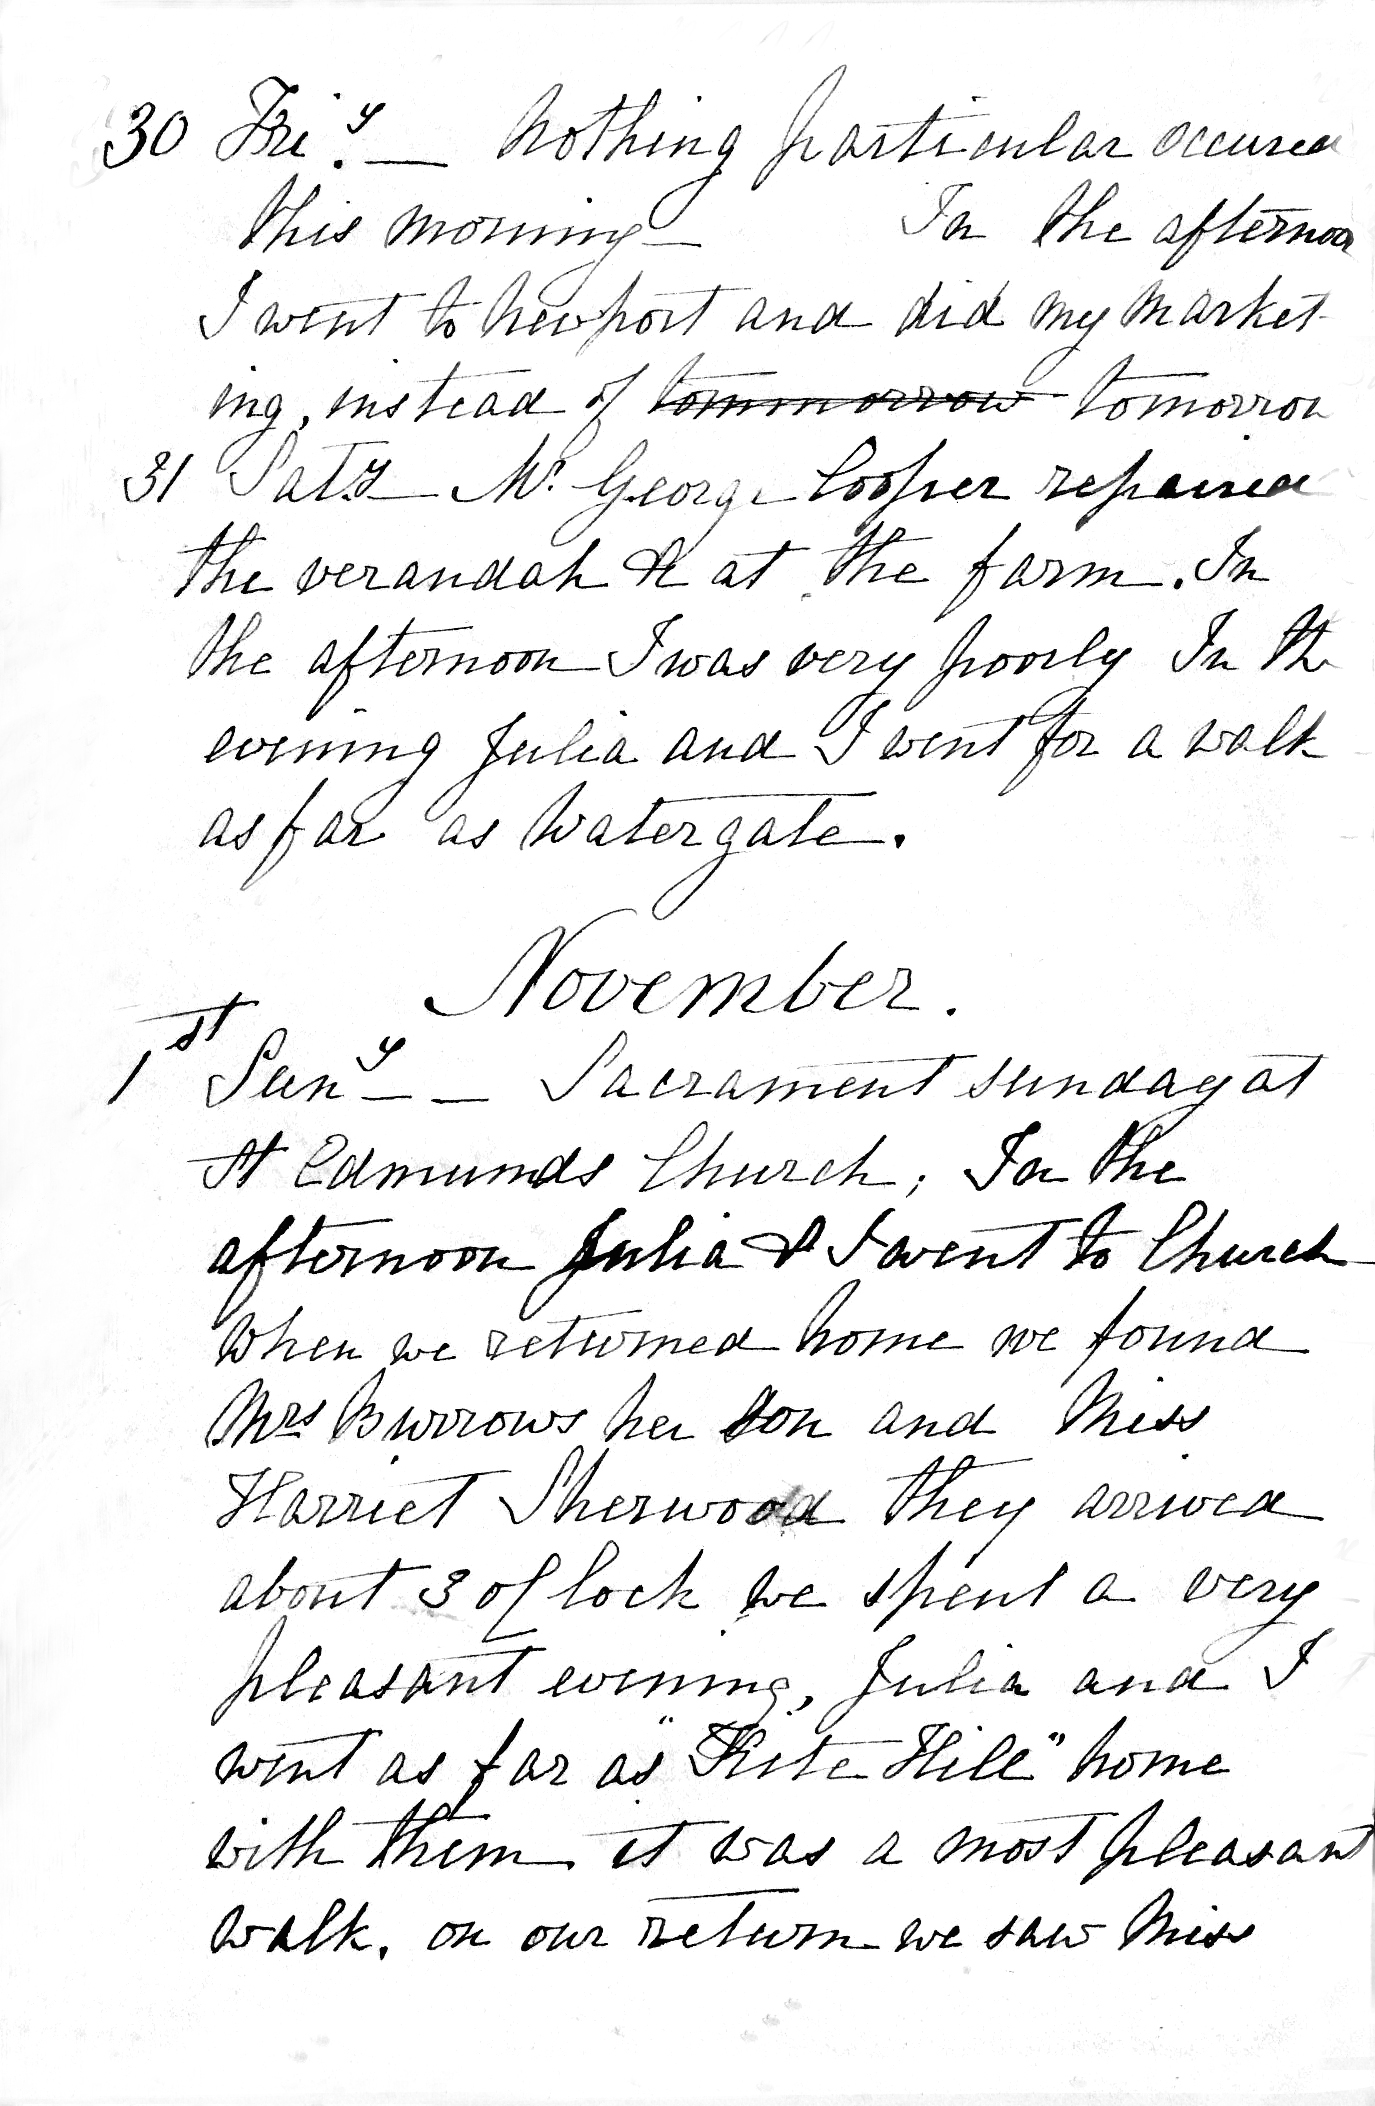 30 Fri.y — Nothing particular occured
this morning — In the afternoon
I went to Newport and did my market-
ing, instead of tommorrow tomorrow
31 Sat.y — Mr. George Cooper repaired
the verandah &c at the farm. In
the afternoon I was very poorly In the
evening Julia and I went for a walk
as far as Watergate.
November.
1st Suny — — Sacrament sunday at
St Edmunds Church; In the
afternoon Julia & I went to Church
When we returned home we found
Mrs Burrows her son and Miss
Harriet Sherwood they arrived
about 3 oClock we spent a very
pleasant evening, Julia and I
went as far as "Kite Hill" home
with them it was a most pleasant
walk. on our return we saw Miss